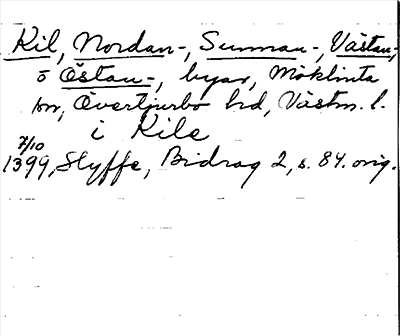 Kil, Nordan-, Sunnan-, Västan-,
o Östan-, byar, Möklinta
sn, Övertjurbo hd, Västm. l.
i Kile
7/10
1399, Styffe, Bidrag 2, s. 84. orig.